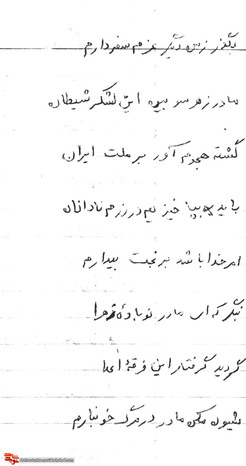 بگذر ز من مادر عزم سفر دارم
مادر ز هر سو بین این لشکر شیطان
گشته هجوم آور بر ملت ایران
باید بپا خیزیم در رزم نادانان
امر خدا باشد بر نجات بیدارم
بنگر که ای مادر نوباوهٔ
گردید گرفتار این فرقهٔ اعدا
شیون مکن مادر در مرگ خونبارم